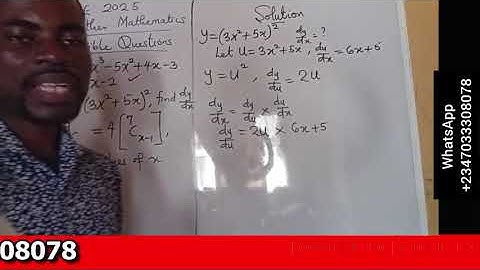 2025
Further Mathematics
Questions
x³-5x²+4x-3
x-2 ✓
(3x²+5x)², find dy/dx
= 4[⁷Cₓ₋₁],
of x
Solution
y=(3x²+5x)² dy/dx = ?
Let U=3x²+5x, dy/dx = 6x+5
y = U², dy/du = 2U
dy/dx = dy/du × du/dx
dy/du = 2U × 6x+5
WhatsApp
+2347033308078
08078